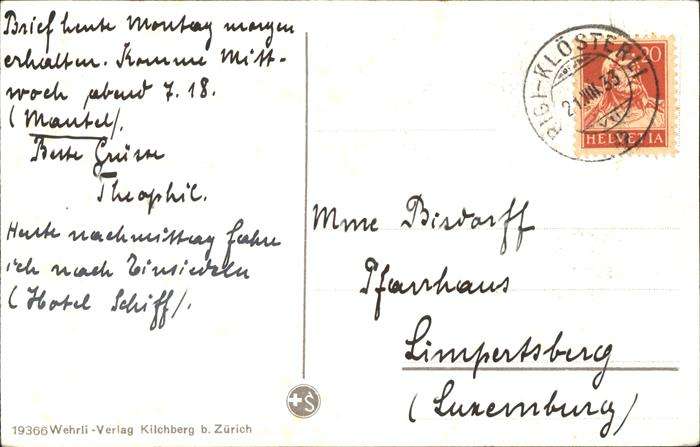 Brief heute Montag morgen
erhalten. Komme Mitt-
woch abend 7.18.
(Mantel).
Beste Grüsse
Theophil.
Heute nachmittag fahre
ich nach Einsiedeln
(Hotel Schiff).
19366 Wehrli-Verlag Kilchberg b. Zürich
RIGI-KLÖSTERLI
21.VIII.33
20
HELVETIA
Mme Bisdorff
Pfarrhaus
Limpertsberg
(Luxemburg).